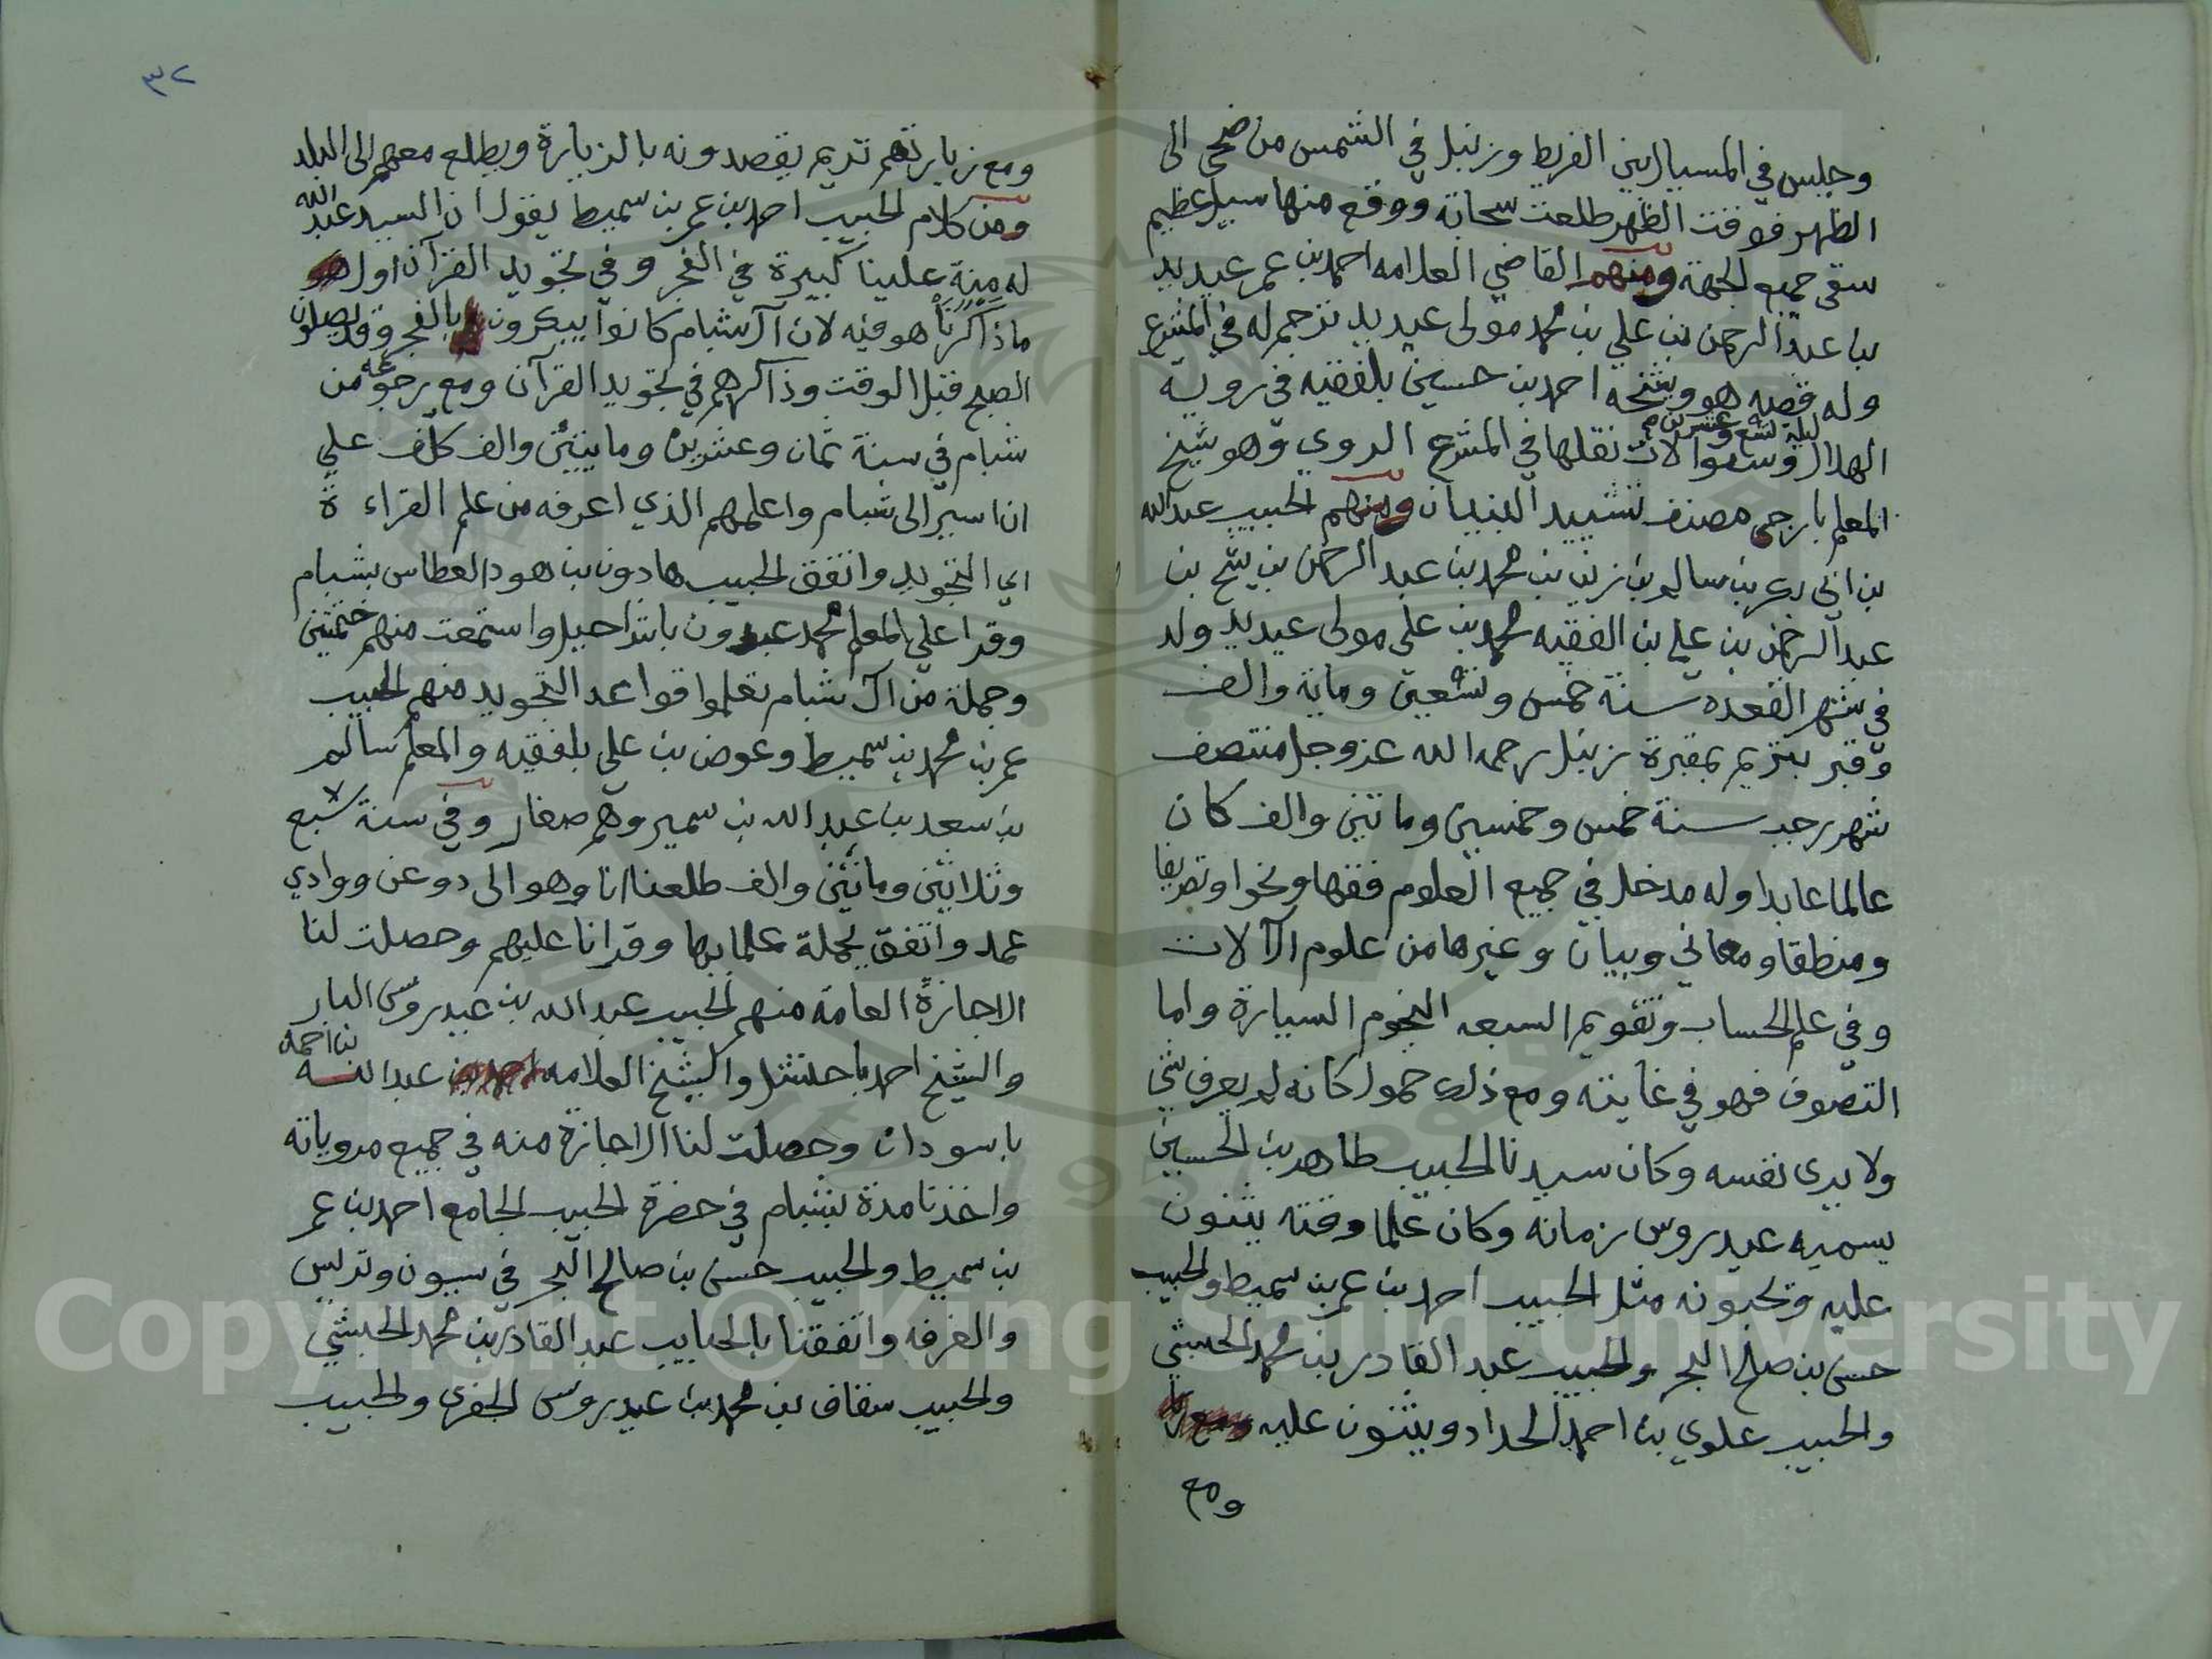 وجلس في المسيال بين الفريط وزنبل في الشمس من ضحى الى
الظهر فوقت الظهر طلعت سحابة ووقع منها سيل عظيم
سقى جميع الجهة ومنهم القاضي العلامه احمد بن عمر عيديد
با عبد الرحمن بن علي بن محمد مولى عيديد ترجم له في المشرع
وله قصه هو وشيخه احمد بن حسين بلفقيه في روية
الهلال ليلة تسع وعشرين وسؤالات نقلها في المشرع الروي وهو شيخ
المعلم بارجى مصنف تشييد البنيان ومنهم الحبيب عبد الله
بن ابي بكر بن سالم بن زين بن محمد بن عبد الرحمن بن شيخ بن
عبد الرحمن بن علي بن الفقيه محمد بن علي مولى عيديد ولد
في شهر القعده سنة خمس وتسعين وماية والف
وقبر بتريم بمقبرة زنبل رحمه الله عز وجل منتصف
شهر رجب سنة خمس وخمسين ومائتين والف كان
عالما عابدا وله مدخل في جميع العلوم فقها ونحوا وتصريفا
ومنطقا ومعاني وبيان وغيرها من علوم الآلات
وفي علم الحساب وتقويم السبعه النجوم السيارة واما
التصوف فهو في غايته ومع ذلك خمول كانه لم يعرف شي
ولا يرى نفسه وكان سيدنا الحبيب طاهر بن الحسين
يسميه عيدروس زمانه وكان علما وقته يثنون
عليه ويحبونه مثل الحبيب احمد بن عمر بن سميط والحبيب
حسن بن صلح البحر والحبيب عبد القادر بن محمد الحبشي
والحبيب علوي بن احمد الحداد ويثنون عليه
ومع
٣٢
ومع زيارتهم تريم يقصدونه بالزيارة ويطلع معهم الى البلد
ومن كلام الحبيب احمد بن عمر بن سميط يقول ان السيد عبد الله
له منة علينا كبيرة في الفجر وفي تجويد القرآن اول
ماذاكرنا هو فيه لان آل شبام كانوا يبكرون بالفجر وقد يصلون
الصبح قبل الوقت وذاكرهم في تجويد القرآن ومع رجوعه من
شبام في سنة ثمان وعشرين ومايتين والف كلف علي
ان اسير الى شبام واعلمهم الذي اعرفه من علم القراءة
اي التجويد واتفق الحبيب هادون بن هود العطاس بشبام
وقرا علي المعلم محمد عبدون باشراحيل واستمعت منهم ختمتين
وجملة من آل شبام تعلموا قواعد التجويد منهم الحبيب
عمر بن محمد بن سميط وعوض بن علي بلفقيه والمعلم سالم
بن سعد بن عبد الله بن سمير وهم صغار وفي سنة سبع
وثلاثين ومائتين والف طلعنا انا وهو الى دوعن ووادي
عمد واتفق بجملة علما بها وقرانا عليهم وحصلت لنا
الاجازة العامة منهم الحبيب عبد الله بن عيدروس البار
والشيخ احمد باحنشل والشيخ العلامه عبد الله بن احمد
باسودان وحصلت لنا الاجازة منه في جميع مروياته
واخذنا مدة بشبام في حضرة الحبيب الجامع احمد بن عمر
بن سميط والحبيب حسن بن صالح البحر في سيون وتريس
والغرفه واتفقنا بالحبايب عبد القادر بن محمد الحبشي
والحبيب سقاف بن محمد بن عيدروس الجفري والحبيب
Copyright © King Saud University